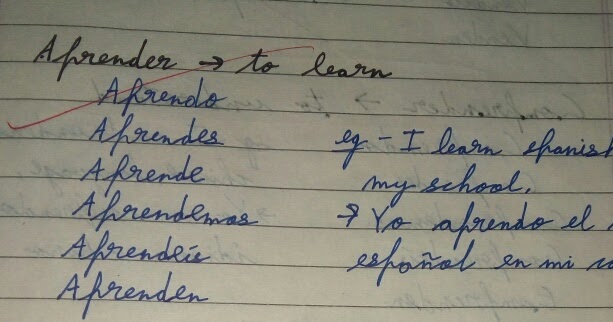 Aprender → to learn
Aprendo
Aprendes
Aprende
Aprendemos
Aprendéis
Aprenden
eg - I learn spanish
my school.
→ Yo aprendo el
español en mi